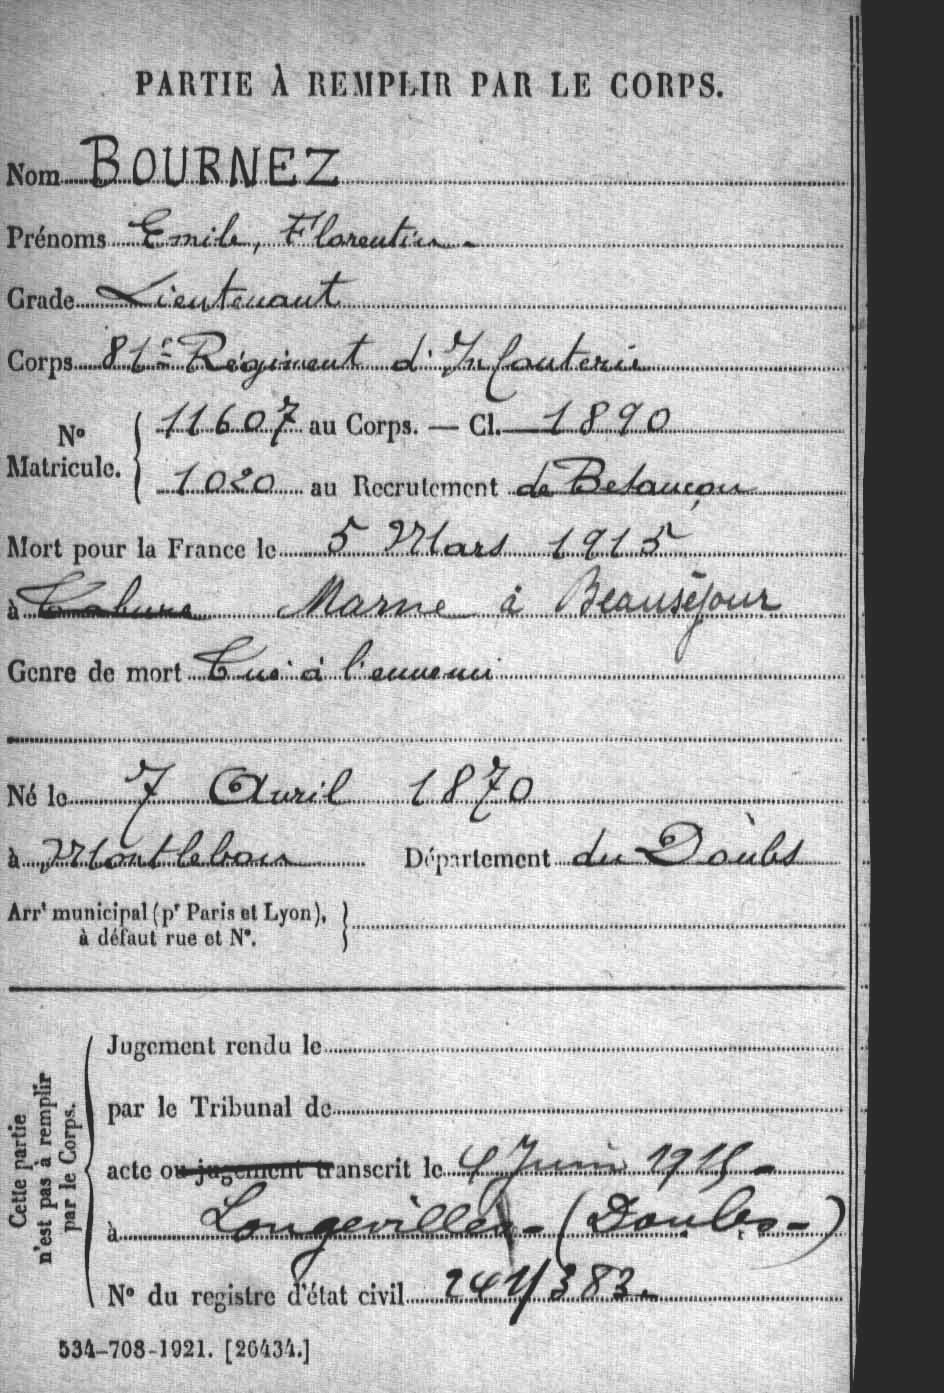 PARTIE À REMPLIR PAR LE CORPS.
Nom BOURNEZ
Prénoms Emile, Florentin
Grade Lieutenant
Corps 81e Régiment d'Infanterie
No Matricule. { 11607 au Corps. — Cl. 1890
1020 au Recrutement de Besançon
Mort pour la France le 5 Mars 1915
à Tahure Marne à Beauséjour
Genre de mort Tué à l'ennemi
Né le 7 Avril 1870
à Montlebon Département du Doubs
Arrt municipal (pr Paris et Lyon), à défaut rue et No. }
Cette partie n'est pas à remplir par le Corps.
Jugement rendu le
par le Tribunal de
acte ou jugement transcrit le 4 Juin 1915
à Longevilles - (Doubs -)
No du registre d'état civil 241/383.
534-708-1921. [26434.]